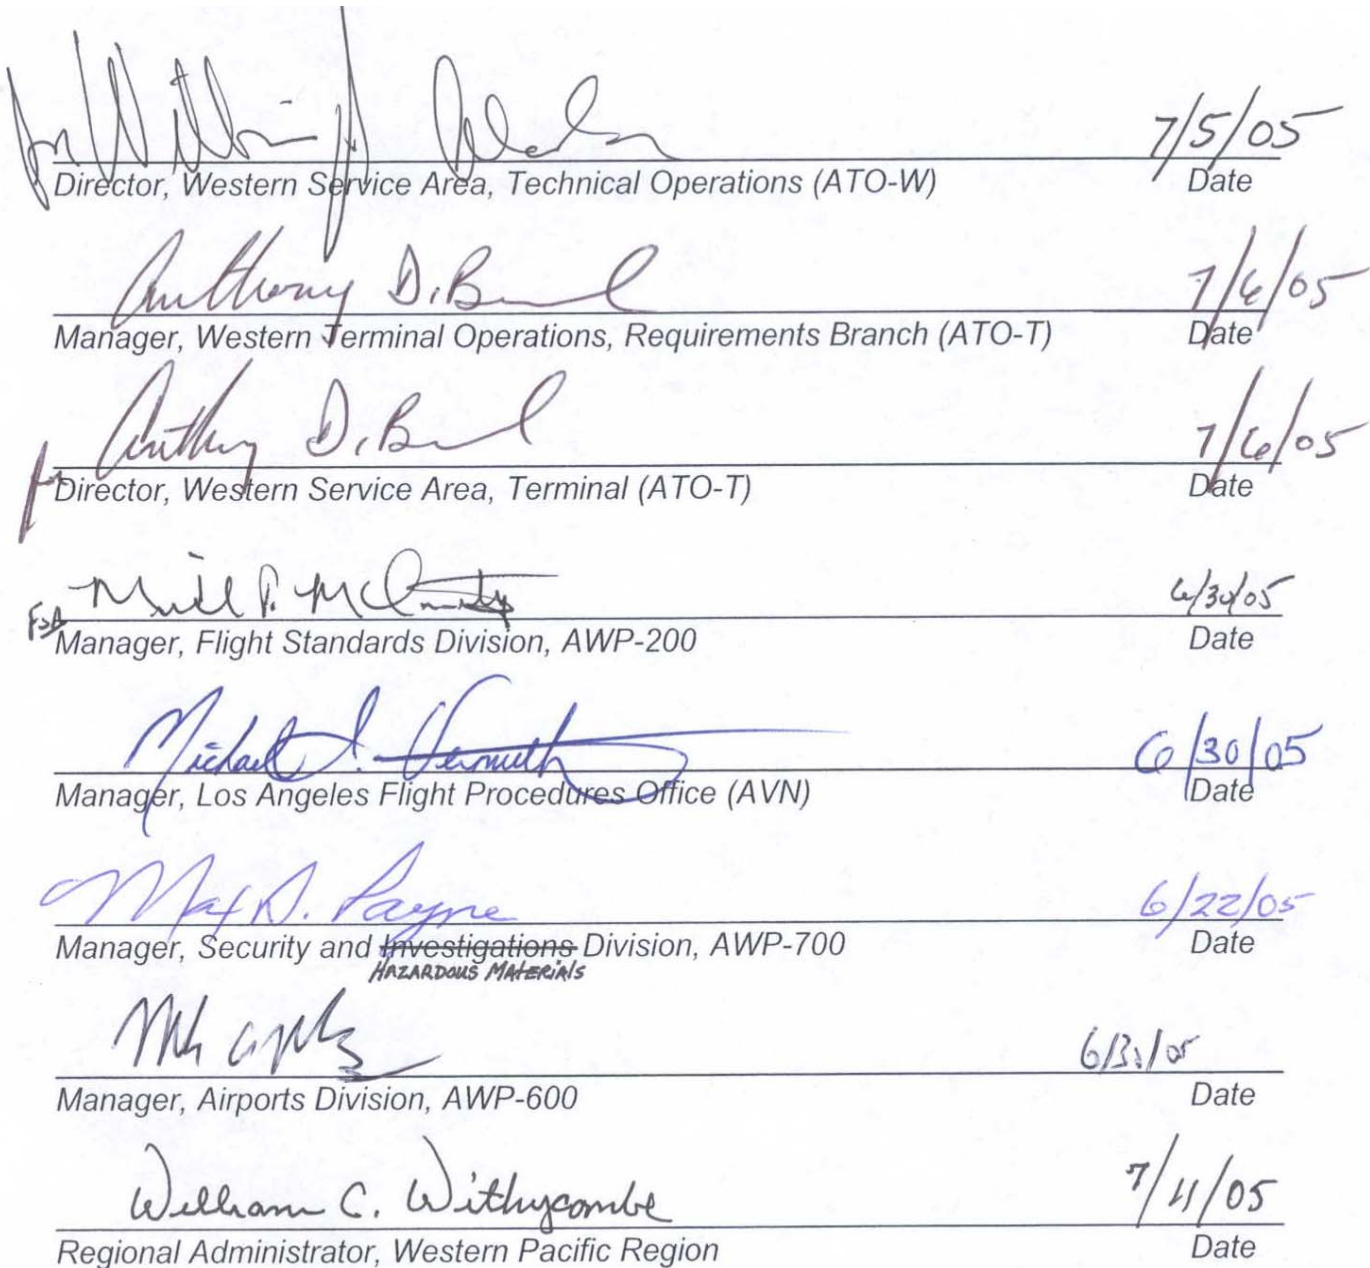 for William J. 7/5/05
Director, Western Service Area, Technical Operations (ATO-W) Date
Anthony DiB 7/6/05
Manager, Western Terminal Operations, Requirements Branch (ATO-T) Date
for Anthony DiB 7/6/05
Director, Western Service Area, Terminal (ATO-T) Date
6/30/05
Manager, Flight Standards Division, AWP-200 Date
Michael J. Vermuth 6/30/05
Manager, Los Angeles Flight Procedures Office (AVN) Date
Max D. Payne 6/22/05
Manager, Security and Investigations Division, AWP-700 Date
HAZARDOUS MATERIALS
Manager, Airports Division, AWP-600 Date
William C. Withycombe 7/11/05
Regional Administrator, Western Pacific Region Date